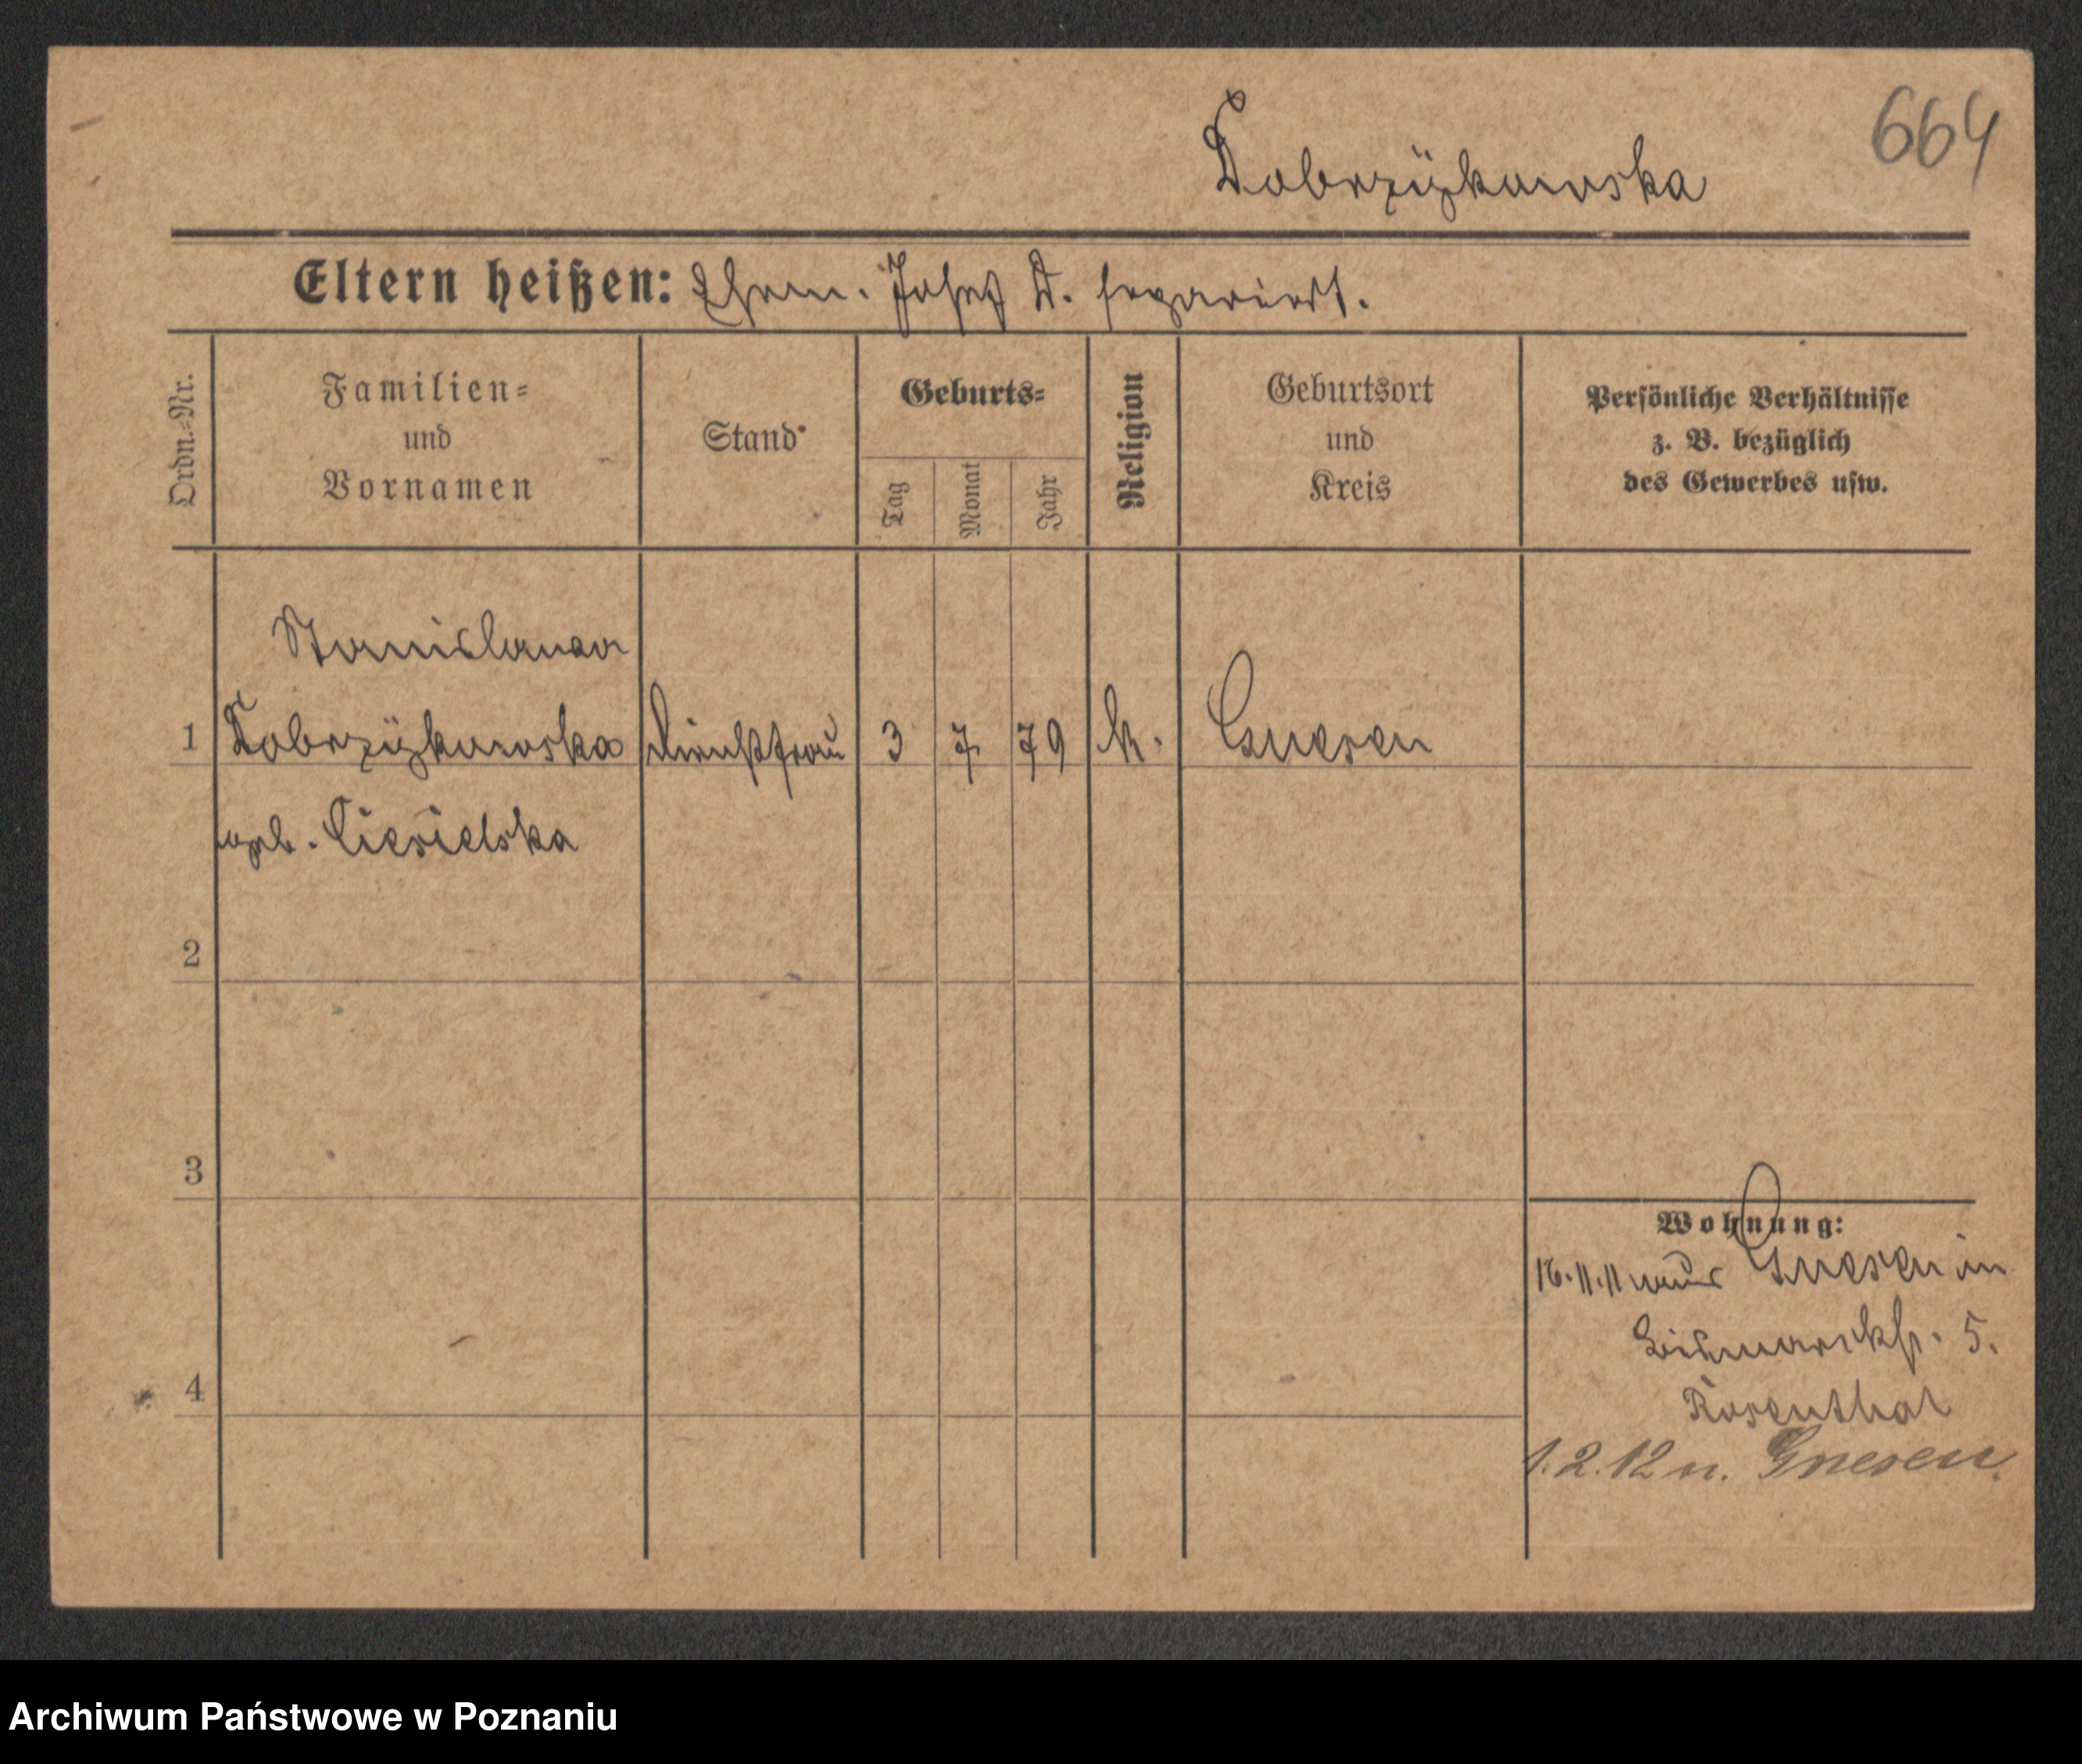 664
Dobrzÿkowska
Eltern heißen: Ehem. Josef D. separiert.
Ordn.-Nr.
Familien-
und
Vornamen
Stand
Geburts-
Tag
Monat
Jahr
Religion
Geburtsort
und
Kreis
Persönliche Verhältnisse
z. B. bezüglich
des Gewerbes usw.
Stanislawa
1 Dobrzÿkowska Dienstfrau 3 7 79 k. Gnesen
geb. Ciesielska
2
3
4
Wohnung:
16.11.11 aus Gnesen in
Bismarckstr. 5.
Rosenthal
1.2.12 n. Gnesen.
Archiwum Państwowe w Poznaniu